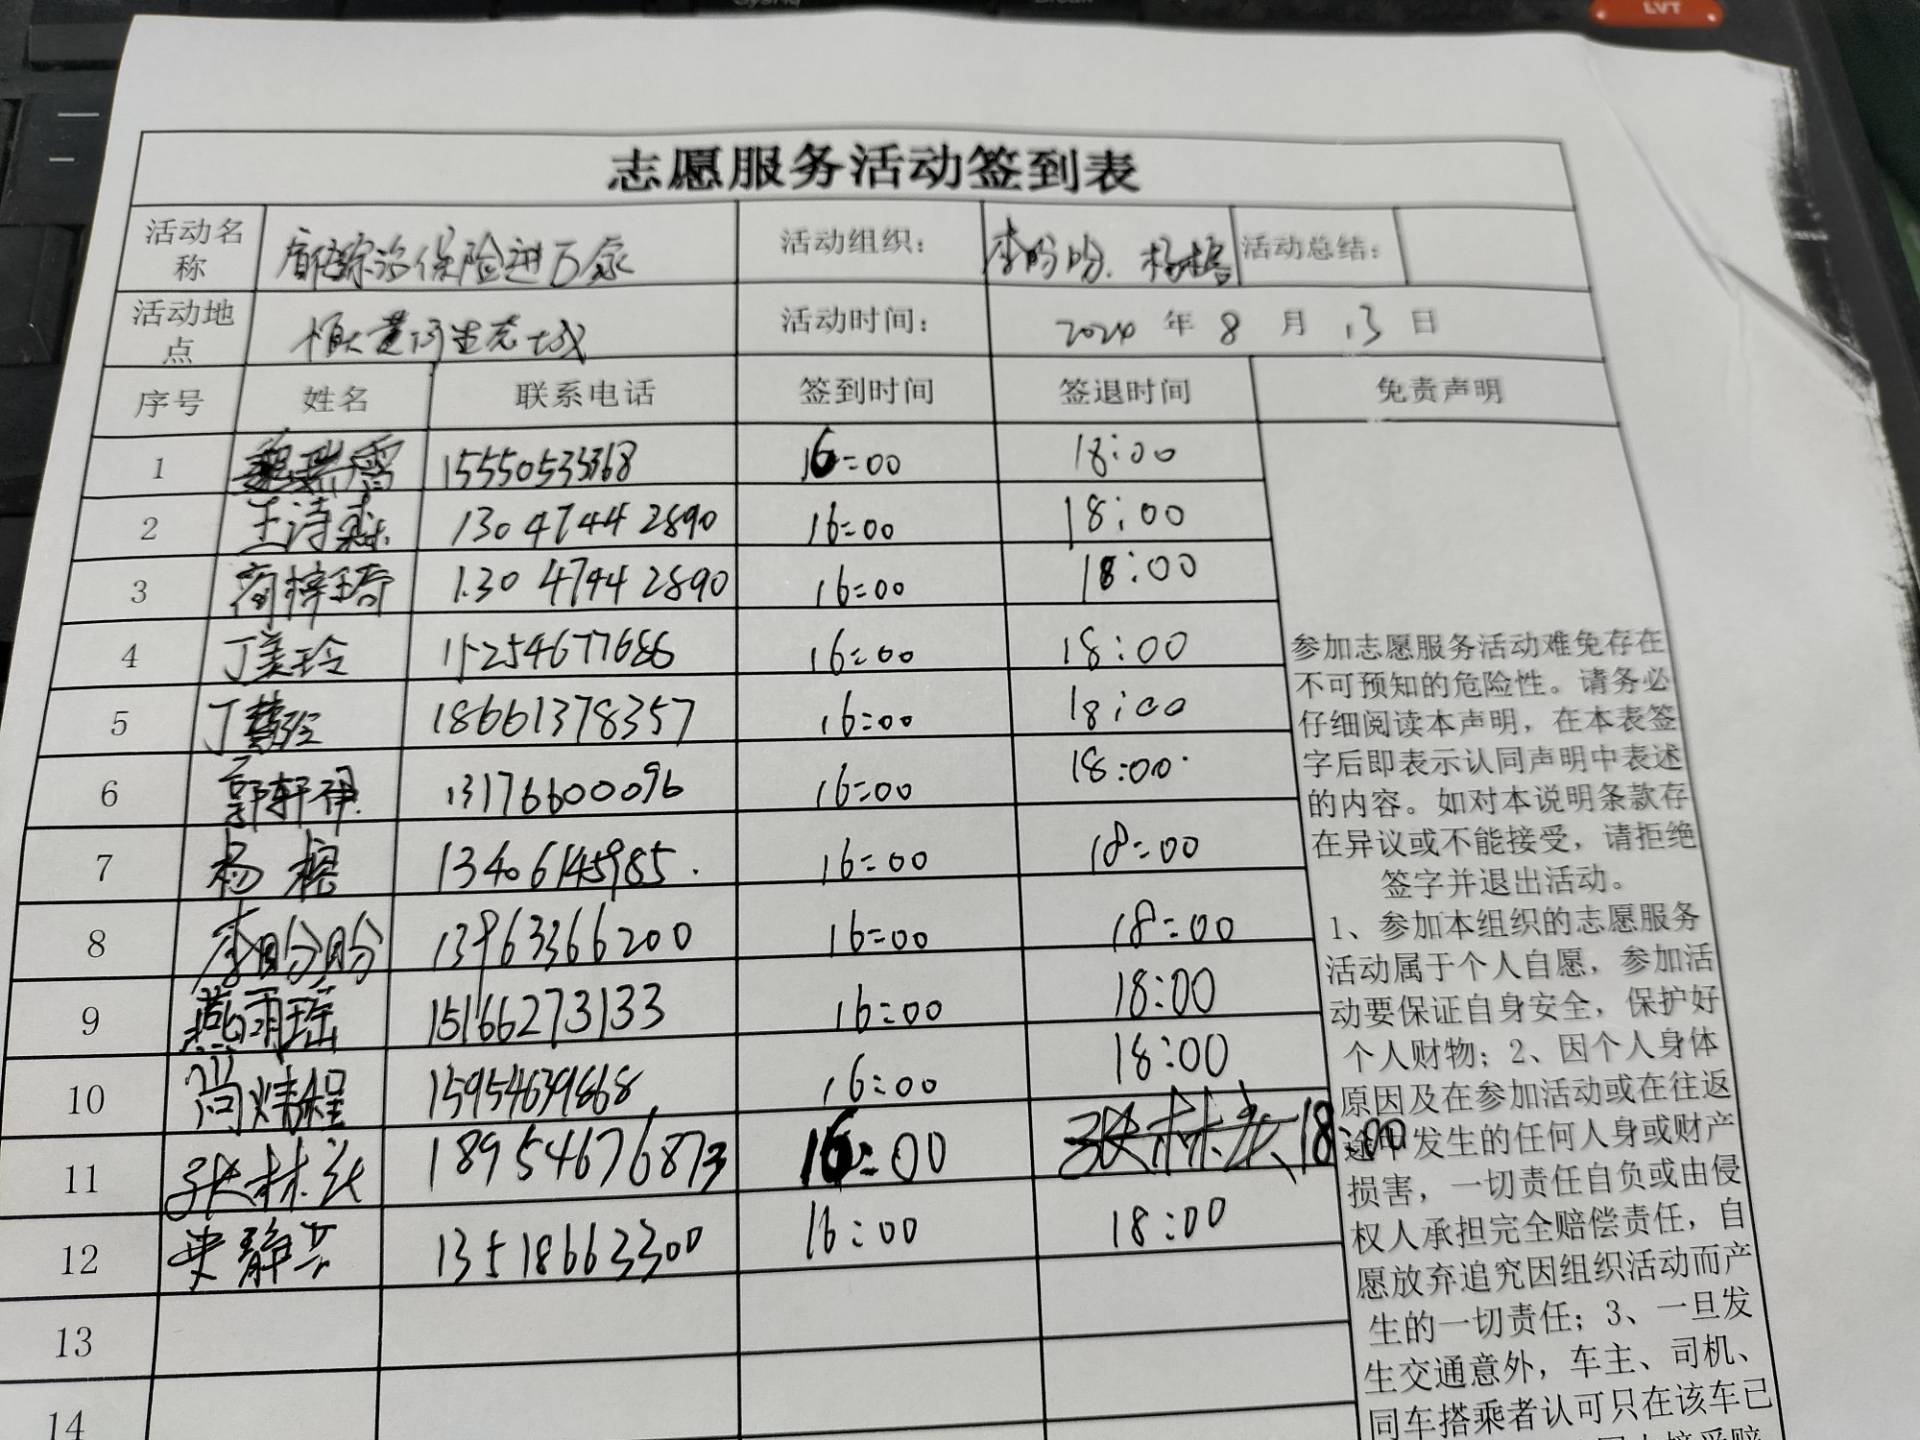 LVT
志愿服务活动签到表
活动名称 综治保险进万家 活动组织: 李盼盼、杨榕 活动总结:
活动地点 恒大黄河生态城 活动时间: 2024 年 8 月 13 日
序号 姓名 联系电话 签到时间 签退时间 免责声明
1 魏瑞雪 15550533368 16:00 18:00
2 王诗 13047442890 16:00 18:00
3 商梓琦 13047442890 16:00 18:00
4 丁美玲 15254677686 16:00 18:00
5 丁 18661378357 16:00 18:00
6 郭轩祺 13176600096 16:00 18:00
7 杨榕 13406145985. 16:00 18:00
8 李盼盼 13963366200 16:00 18:00
9 燕雨瑶 15166273133 16:00 18:00
10 尚炜程 15954639868 16:00 18:00
11 张林 18954676873 16:00 18:00
12 静 13518663300 16:00 18:00
13
14
参加志愿服务活动难免存在
不可预知的危险性。请务必
仔细阅读本声明，在本表签
字后即表示认同声明中表述
的内容。如对本说明条款存
在异议或不能接受，请拒绝
签字并退出活动。
1、参加本组织的志愿服务
活动属于个人自愿，参加活
动要保证自身安全，保护好
个人财物；2、因个人身体
原因及在参加活动或在往返
途中发生的任何人身或财产
损害，一切责任自负或由侵
权人承担完全赔偿责任，自
愿放弃追究因组织活动而产
生的一切责任；3、一旦发
生交通意外，车主、司机、
同车搭乘者认可只在该车已